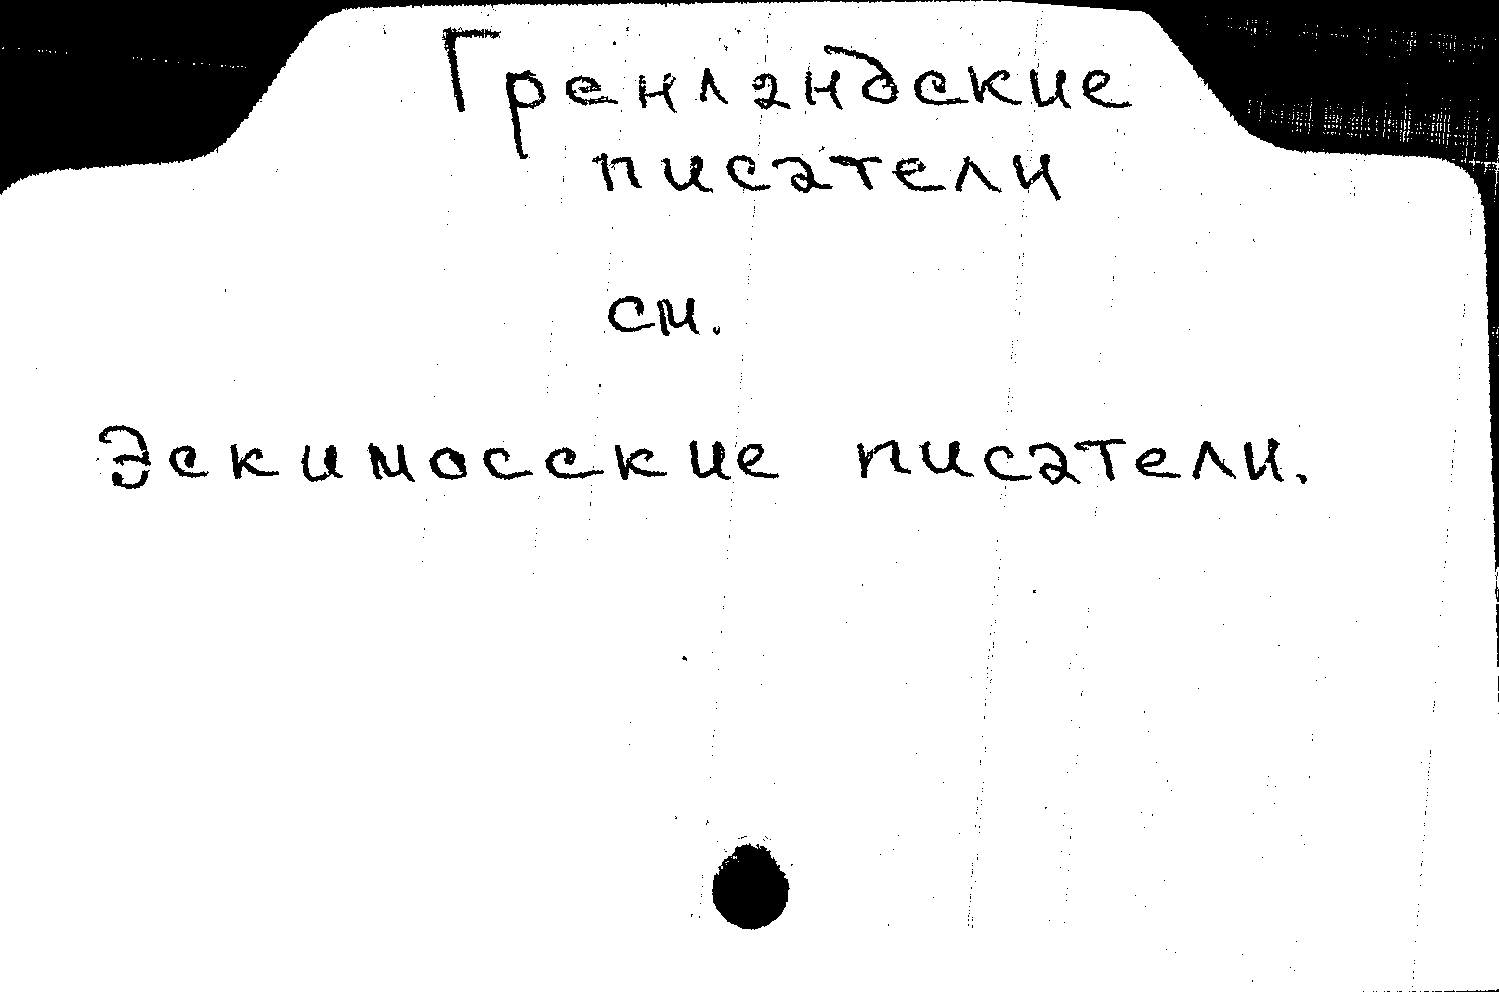 Гренландские
писатели
см.
Эскимосские писатели.